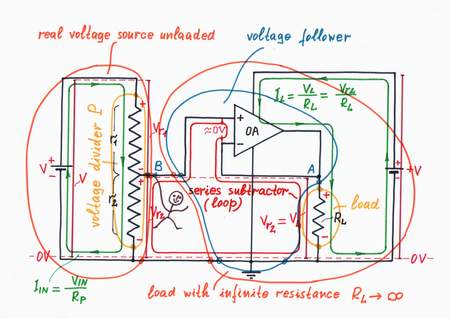 real voltage source unloaded
voltage follower
I_L = V_L/R_L = V_r2/R_L
+
voltage divider P
r1
r2
V_r1
≈0V
+
-
OA
V
V
+V
B
A
V_r2
series subtractor
(loop)
V_r2 = V_L
R_L
load
-0V
-0V
I_IN = V_IN/R_P
load with infinite resistance R_L → ∞